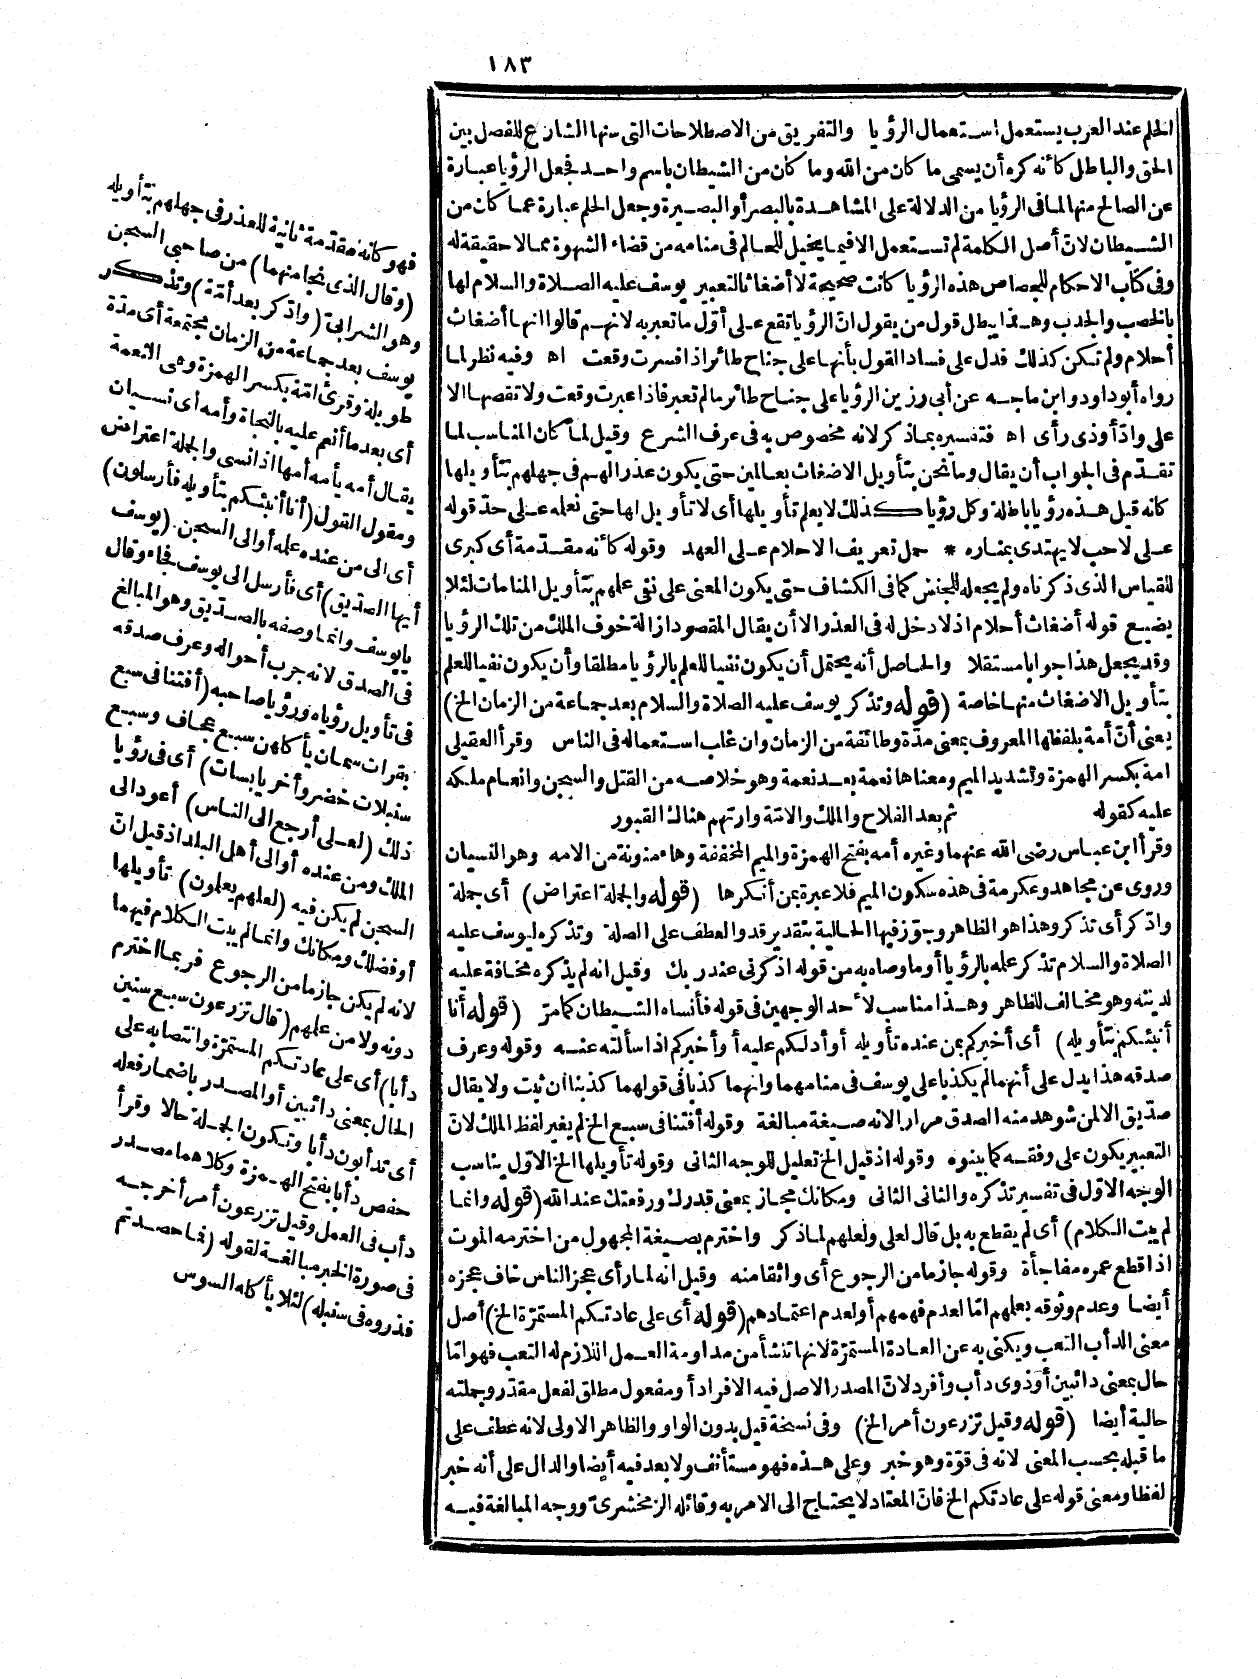 ١٨٣
الحلم عند العرب يستعمل استعمال الرؤيا والتفريق من الاصطلاحات التى سنها الشارع للفصل بين
الحق والباطل كأنه كره أن يسمى ما كان من الله وما كان من الشيطان باسم واحد فجعل الرؤيا عبارة
عن الصالح منها لما فى الرؤيا من الدلالة على المشاهدة بالبصر أو البصيرة وجعل الحلم عبارة عما كان من
الشيطان لانّ أصل الكلمة لم تستعمل الا فيما يخيل للحالم فى منامه من قضاء الشهوة مما لا حقيقة له
وفى كتاب الاحكام للجصاص هذه الرؤيا كانت صحيحة لا أضغاثا لتعبير يوسف عليه الصلاة والسلام لها
بالخصب والجدب وهذا يبطل قول من يقول انّ الرؤيا تقع على أوّل ما تعبر به لانهم قالوا انها أضغاث
أحلام ولم تكن كذلك فدل على فساد القول بأنها على جناح طائر اذا فسرت وقعت اه وفيه نظر لما
رواه أبو داود وابن ماجه عن أبى رزين الرؤيا على جناح طائر ما لم تعبر فاذا عبرت وقعت ولا تقصها الا
على وادّ أو ذى رأى اه فتفسيره بما ذكر لانه مخصوص به فى عرف الشرع وقيل لما كان المناسب لما
تقدّم فى الجواب أن يقال وما نحن بتأويل الاضغاث بعالمين حتى يكون عذرا لهم فى جهلهم بتأويلها
كانه قيل هذه رؤيا باطلة وكل رؤيا كذلك لا يعلم تأويلها أى لا تأويل لها حتى نعله على حدّ قوله
على لاحب لا يهتدى بمناره * حمل تعريف الاحلام على العهد وقوله كأنه مقدّمة أى كبرى
للقياس الذى ذكرناه ولم يجعله للجنس كما فى الكشاف حتى يكون المعنى على نفى علمهم بتأويل المنامات لئلا
يضيع قوله أضغاث أحلام اذ لا دخل له فى العذر الا أن يقال المقصود ازالة خوف الملك من تلك الرؤيا
وقد يجعل هذا جوابا مستقلا والحاصل أنه يحتمل أن يكون نفيا للعلم بالرؤيا مطلقا وأن يكون نفيا للعلم
بتأويل الاضغاث منها خاصة (قوله وتذكر يوسف عليه الصلاة والسلام بعد جماعة من الزمان الخ)
يعنى أنّ أمة بلفظها المعروف بمعنى مدّة وطائفة من الزمان وان غلب استعماله فى الناس وقرأ العقيلى
امة بكسر الهمزة وتشديد الميم ومعناها نعمة بعد نعمة وهو خلاصه من القتل والسجن وانعام ملكه
عليه كقوله ثم بعد الفلاح والملك والامّة وارتهم هناك القبور
وقرأ ابن عباس رضى الله عنهما وغيره أمه بفتح الهمزة والميم المخففة وهاء منونة من الامه وهو النسيان
وروى عن مجاهد وعكرمة فى هذه سكون الميم فلا عبرة بمن أنكرها (قوله والجملة اعتراض) أى جملة
واذكر أى تذكر وهذا هو الظاهر وجوّز فيها الحالية بتقدير قد والعطف على الصلة وتذكره ليوسف عليه
الصلاة والسلام تذكر علمه بالرؤيا أو ما وصاه به من قوله اذكرنى عند ربك وقيل انه لم يذكره مخافة عليه
لدينه وهو مخالف للظاهر وهذا مناسب لأحد الوجهين فى قوله فأنساه الشيطان كما مرّ (قوله أنا
أنبئكم بتأويله) أى أخبركم بمن عنده تأويله أو أدلكم عليه أو أخبركم اذا سألته عنه وقوله وعرف
صدقه هذا يدل على أنهما لم يكذبا على يوسف فى منامهما وانهما كذبا فى قولهما كذبنا ان ثبت ولا يقال
صدّيق الا لمن شوهد منه الصدق مرارا لانه صيغة مبالغة وقوله أفتنا فى سبع الخ لم يغير لفظ الملك لانّ
التعبير يكون على وفقه كما بينوه وقوله اذ قيل الخ تعليل للوجه الثانى وقوله تأويلها الخ الاوّل يناسب
الوجه الاوّل فى تفسير تذكره والثانى الثانى ومكانك مجاز بمعنى قدرك ورفعتك عند الله (قوله وانما
لم يبت الكلام) أى لم يقطع به بل قال لعلى ولعلهم لما ذكر واخترم بصيغة المجهول من اخترمه الموت
اذا قطع عمره مفاجأة وقوله جازما من الرجوع أى واثقا منه وقيل انه لما رأى عجز الناس خاف عجزه
أيضا وعدم وثوقه بعلمهم امّا لعدم فهمهم أو لعدم اعتمادهم (قوله أى على عادتكم المستمرّة الخ) أصل
معنى الدأب التعب ويكنى به عن العادة المستمرّة لانها تنشأ من مداومة العمل اللازم له التعب فهو امّا
حال بمعنى دائبين أو ذوى دأب وأفرد لانّ المصدر الاصل فيه الافراد أو مفعول مطلق لفعل مقدّر وجملته
حالية أيضا (قوله وقيل تزرعون أمر الخ) وفى نسخة قيل بدون الواو والظاهر الاولى لانه عطف على
ما قبله بحسب المعنى لانه فى قوّة وهو خبر وعلى هذه فهو مستأنف ولا بعد فيه أيضا والدال على أنه خبر
لفظا ومعنى قوله على عادتكم الخ فانّ المعتاد لا يحتاج الى الامر به وقائله الزمخشرىّ ووجه المبالغة فيه
فهو كأنه مقدّمة ثانية للعذر فى جهلهم بتأويله
(وقال الذى نجا منهما) من صاحبى السجن
وهو الشرابىّ (واذكر بعد أمّة) وتذكر
يوسف بعد جماعة من الزمان مجتمعة أى مدّة
طويلة وقرئ امّة بكسر الهمزة وهى النعمة
أى بعد ما أنعم عليه بالنجاة وأمه أى نسيان
يقال أمه يأمه أمها اذا نسى والجملة اعتراض
ومقول القول (أنا أنبئكم بتأويله فأرسلون)
أى الى من عنده علمه أو الى السجن (يوسف
أيها الصدّيق) أى فأرسل الى يوسف فجاء وقال
يا يوسف وانما وصفه بالصدّيق وهو المبالغ
فى الصدق لانه جرب أحواله وعرف صدقه
فى تأويل رؤياه ورؤيا صاحبه (أفتنا فى سبع
بقرات سمان يأكلهن سبع عجاف وسبع
سنبلات خضر وأخر يابسات) أى فى رؤيا
ذلك (لعلى أرجع الى الناس) أعود الى
الملك ومن عنده أو الى أهل البلد اذ قيل انّ
السجن لم يكن فيه (لعلهم يعلمون) تأويلها
أو فضلك ومكانك وانما لم يبت الكلام فيهما
لانه لم يكن جازما من الرجوع فربما اخترم
دونه ولا من علمهم (قال تزرعون سبع سنين
دأبا) أى على عادتكم المستمرّة وانتصابه على
الحال بمعنى دائبين أو المصدر باضمار فعله
أى تدأبون دأبا وتكون الجملة حالا وقرأ
حفص دأبا بفتح الهمزة وكلاهما مصدر
دأب فى العمل وقيل تزرعون أمر أخرجه
فى صورة الخبر مبالغة لقوله (فما حصدتم
فذروه فى سنبله) لئلا يأكله السوس